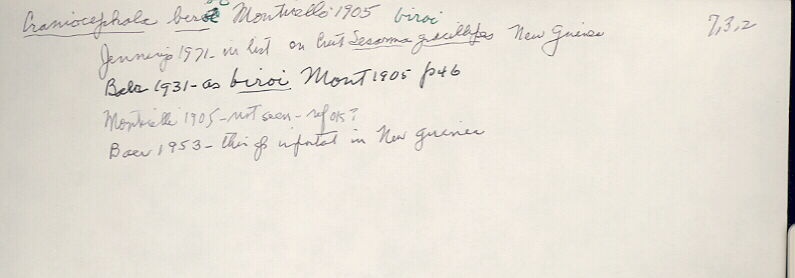 Craniocephala biroi Monticelli 1905 biroi 7,3,2
Jennings 1971 - in list on Crust Sesarma gracilipes New Guinea
Baer 1931 - as biroi Mont 1905 p46
Monticelli 1905 - not seen - ref ok?
Baer 1953 - this sp reported in New Guinea